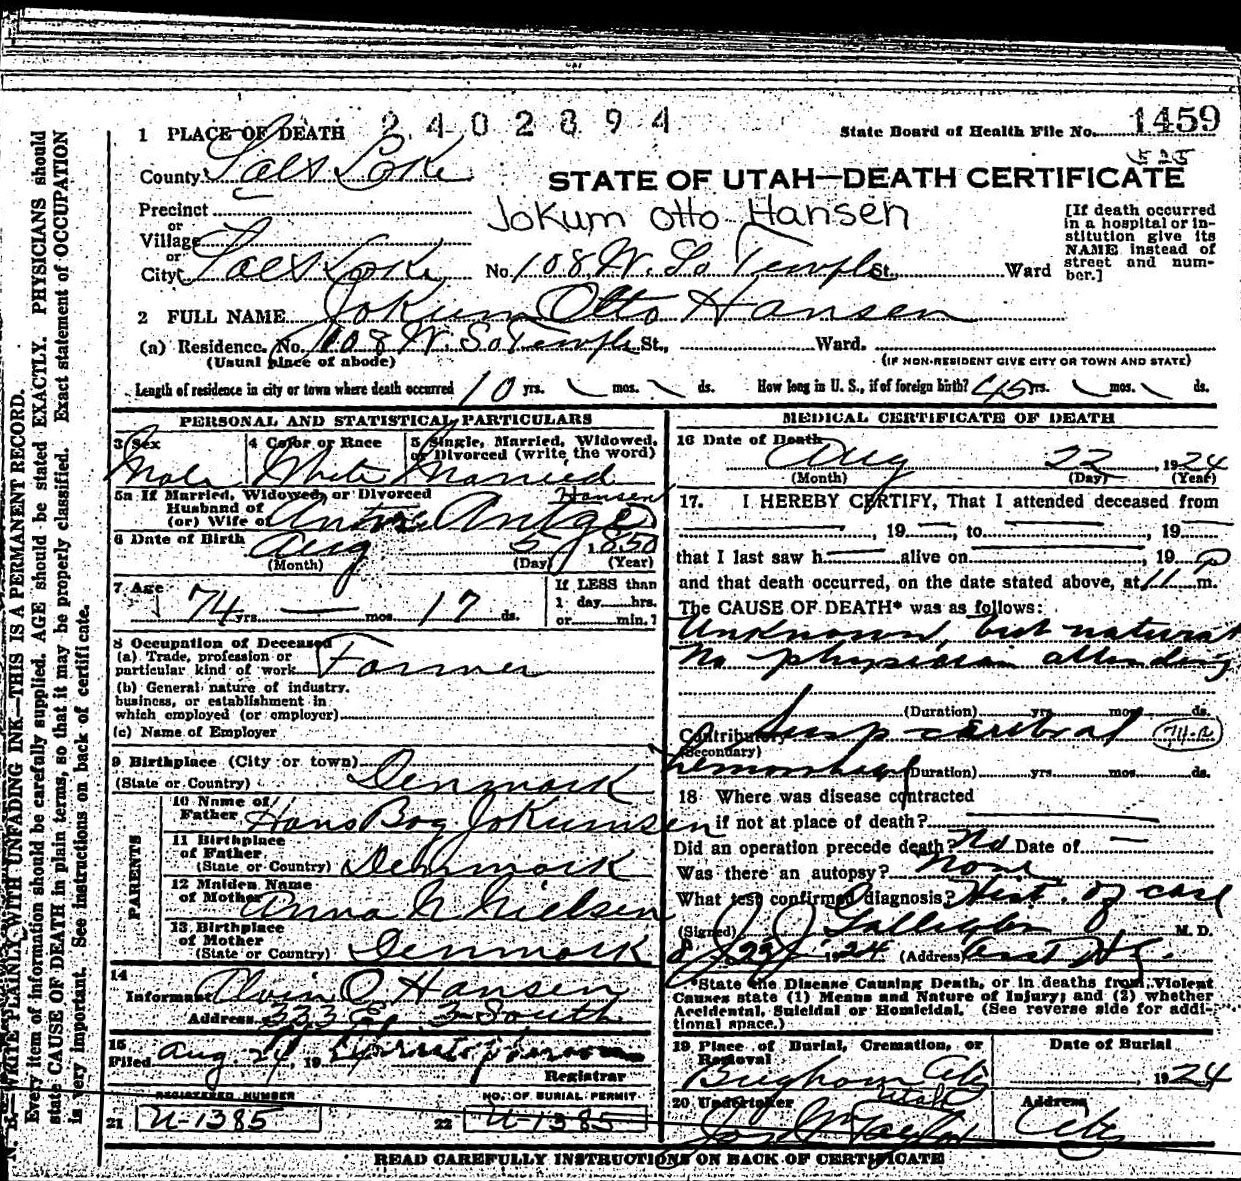 1 PLACE OF DEATH 2402894 State Board of Health File No. 1459
525
County Salt Lake STATE OF UTAH—DEATH CERTIFICATE
Precinct Jokum Otto Hansen
or
Village
or
City Salt Lake No. 108 W. So Temple St. Ward
[If death occurred in a hospital or in-
stitution give its
NAME instead of
street and num-
ber.]
2 FULL NAME Jokum Otto Hansen
(a) Residence. No. 108 W. So Temple St., Ward.
(Usual place of abode) (IF NON-RESIDENT GIVE CITY OR TOWN AND STATE)
Length of residence in city or town where death occurred 10 yrs. mos. ds. How long in U. S., if of foreign birth? 45 yrs. mos. ds.
PERSONAL AND STATISTICAL PARTICULARS
3 Sex 4 Color or Race 5 Single, Married, Widowed,
or Divorced (write the word)
Male White Married
5a If Married, Widowed, or Divorced Hansen
Husband of
(or) Wife of
6 Date of Birth Aug 5 1850
(Month) (Day) (Year)
7 Age 74 yrs. — mos. 17 ds. If LESS than
1 day hrs.
or min.?
8 Occupation of Deceased
(a) Trade, profession or
particular kind of work Farmer
(b) General nature of industry,
business, or establishment in
which employed (or employer)
(c) Name of Employer
9 Birthplace (City or town)
(State or Country) Denmark
PARENTS
10 Name of
Father Hans Bog Jokumsen
11 Birthplace
of Father
(State or Country) Denmark
12 Maiden Name
of Mother Anna N Nielsen
13 Birthplace
of Mother
(State or Country) Denmark
14
Informant Alvin O Hansen
Address 333 E 3 South
15
Filed Aug. 24, 1924
Registrar
REGISTERED NUMBER NO. OF BURIAL PERMIT
21 U-1385 22 U-1385
MEDICAL CERTIFICATE OF DEATH
16 Date of Death
Aug 22, 1924
(Month) (Day) (Year)
17. I HEREBY CERTIFY, That I attended deceased from
, 19 to , 19
that I last saw h alive on , 19
and that death occurred, on the date stated above, at 11 P m.
The CAUSE OF DEATH* was as follows:
Unknown, but natural
No physician attending
(Duration) yrs. mos. ds.
Contributory Susp cerebral 74-a
(Secondary)
hemorrhage (Duration) yrs. mos. ds.
18 Where was disease contracted
if not at place of death?
Did an operation precede death? No Date of —
Was there an autopsy? None
What test confirmed diagnosis? Hist. of case
(Signed) J J Galligan M. D.
8/23, 1924 (Address)
*State the Disease Causing Death, or in deaths from Violent
Causes state (1) Means and Nature of Injury; and (2) whether
Accidental, Suicidal or Homicidal. (See reverse side for addi-
tional space.)
19 Place of Burial, Cremation, or
Removal Date of Burial
Brigham City
Utah , 1924
20 Undertaker Address
Jos Wm Taylor City
READ CAREFULLY INSTRUCTIONS ON BACK OF CERTIFICATE
N. B.—WRITE PLAINLY, WITH UNFADING INK—THIS IS A PERMANENT RECORD.
Every item of information should be carefully supplied. AGE should be stated EXACTLY. PHYSICIANS should
state CAUSE OF DEATH in plain terms, so that it may be properly classified. Exact statement of OCCUPATION
is very important. See instructions on back of certificate.